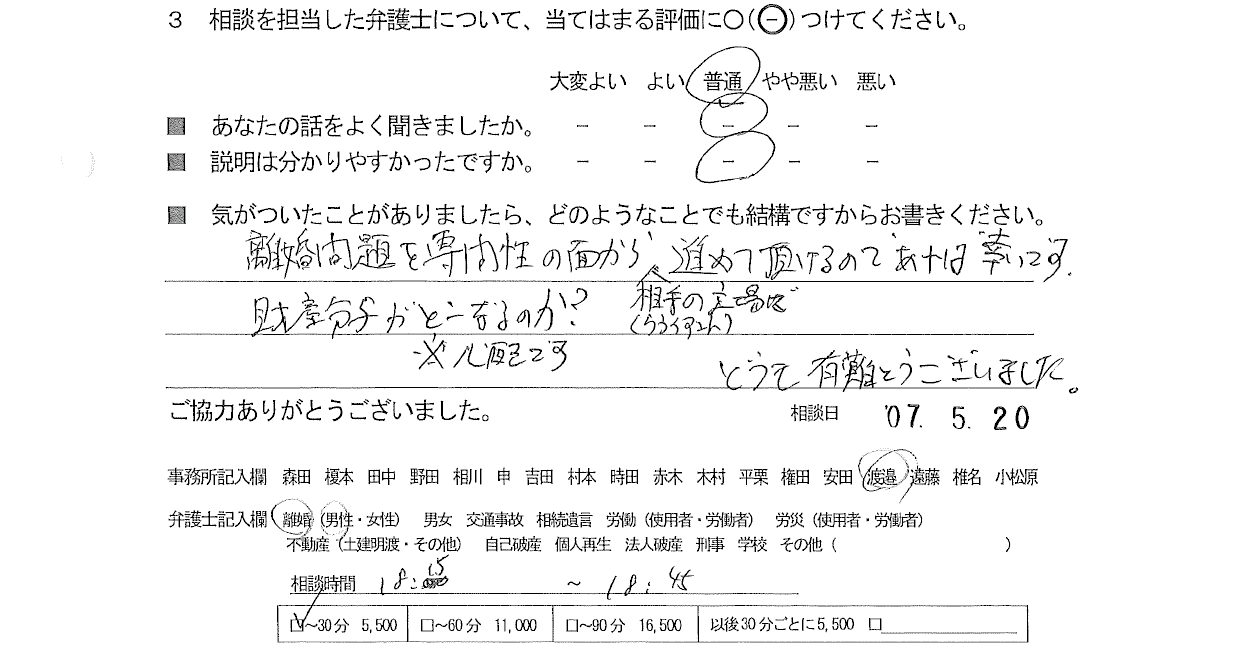 3 相談を担当した弁護士について、当てはまる評価に○(⊖)つけてください。
大変よい よい 普通 やや悪い 悪い
■ あなたの話をよく聞きましたか。 － － － － －
■ 説明は分かりやすかったですか。 － － － － －
■ 気がついたことがありましたら、どのようなことでも結構ですからお書きください。
離婚問題を専門性の面から、進めて頂けるのであれば幸いです。
相手の立場で
(クライアント)
財産分与がどうなるのか?
※心配です
どうも有難とうございました。
ご協力ありがとうございました。 相談日 '07. 5. 20
事務所記入欄 森田 榎本 田中 野田 相川 申 吉田 村本 時田 赤木 木村 平栗 権田 安田 渡邉 遠藤 椎名 小松原
弁護士記入欄 離婚（男性・女性） 男女 交通事故 相続遺言 労働（使用者・労働者） 労災（使用者・労働者）
不動産（土建明渡・その他） 自己破産 個人再生 法人破産 刑事 学校 その他（ ）
相談時間 18:15 ～ 18:45
☑～30分 5,500 □～60分 11,000 □～90分 16,500 以後30分ごとに5,500 □